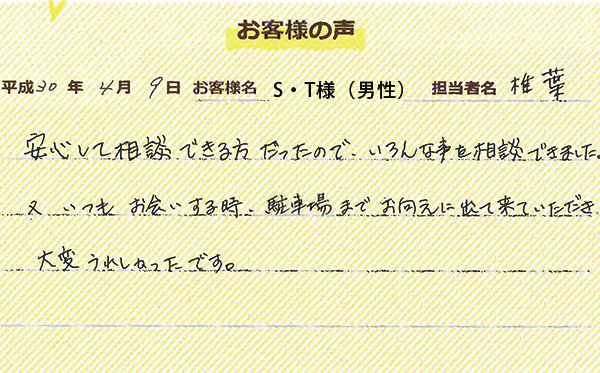 お客様の声
平成30年 4月 9日 お客様名 S・T様（男性） 担当者名 椎葉
安心して相談できる方だったので、いろんな事を相談できました。
又 いつも お会いする時、駐車場まで お向えに出て来ていただき
大変うれしかったです。